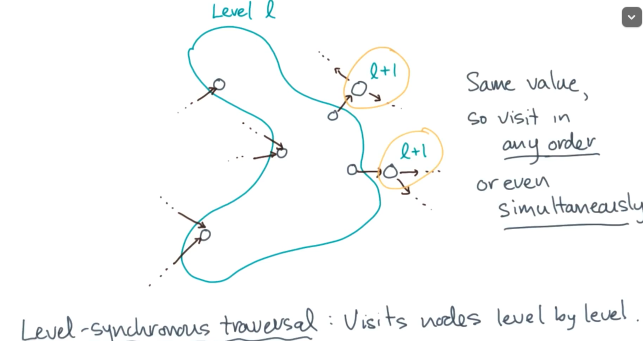 Level l
l+1
l+1
Same value,
so visit in
any order
or even
simultaneously
Level-synchronous traversal : Visits nodes level by level.